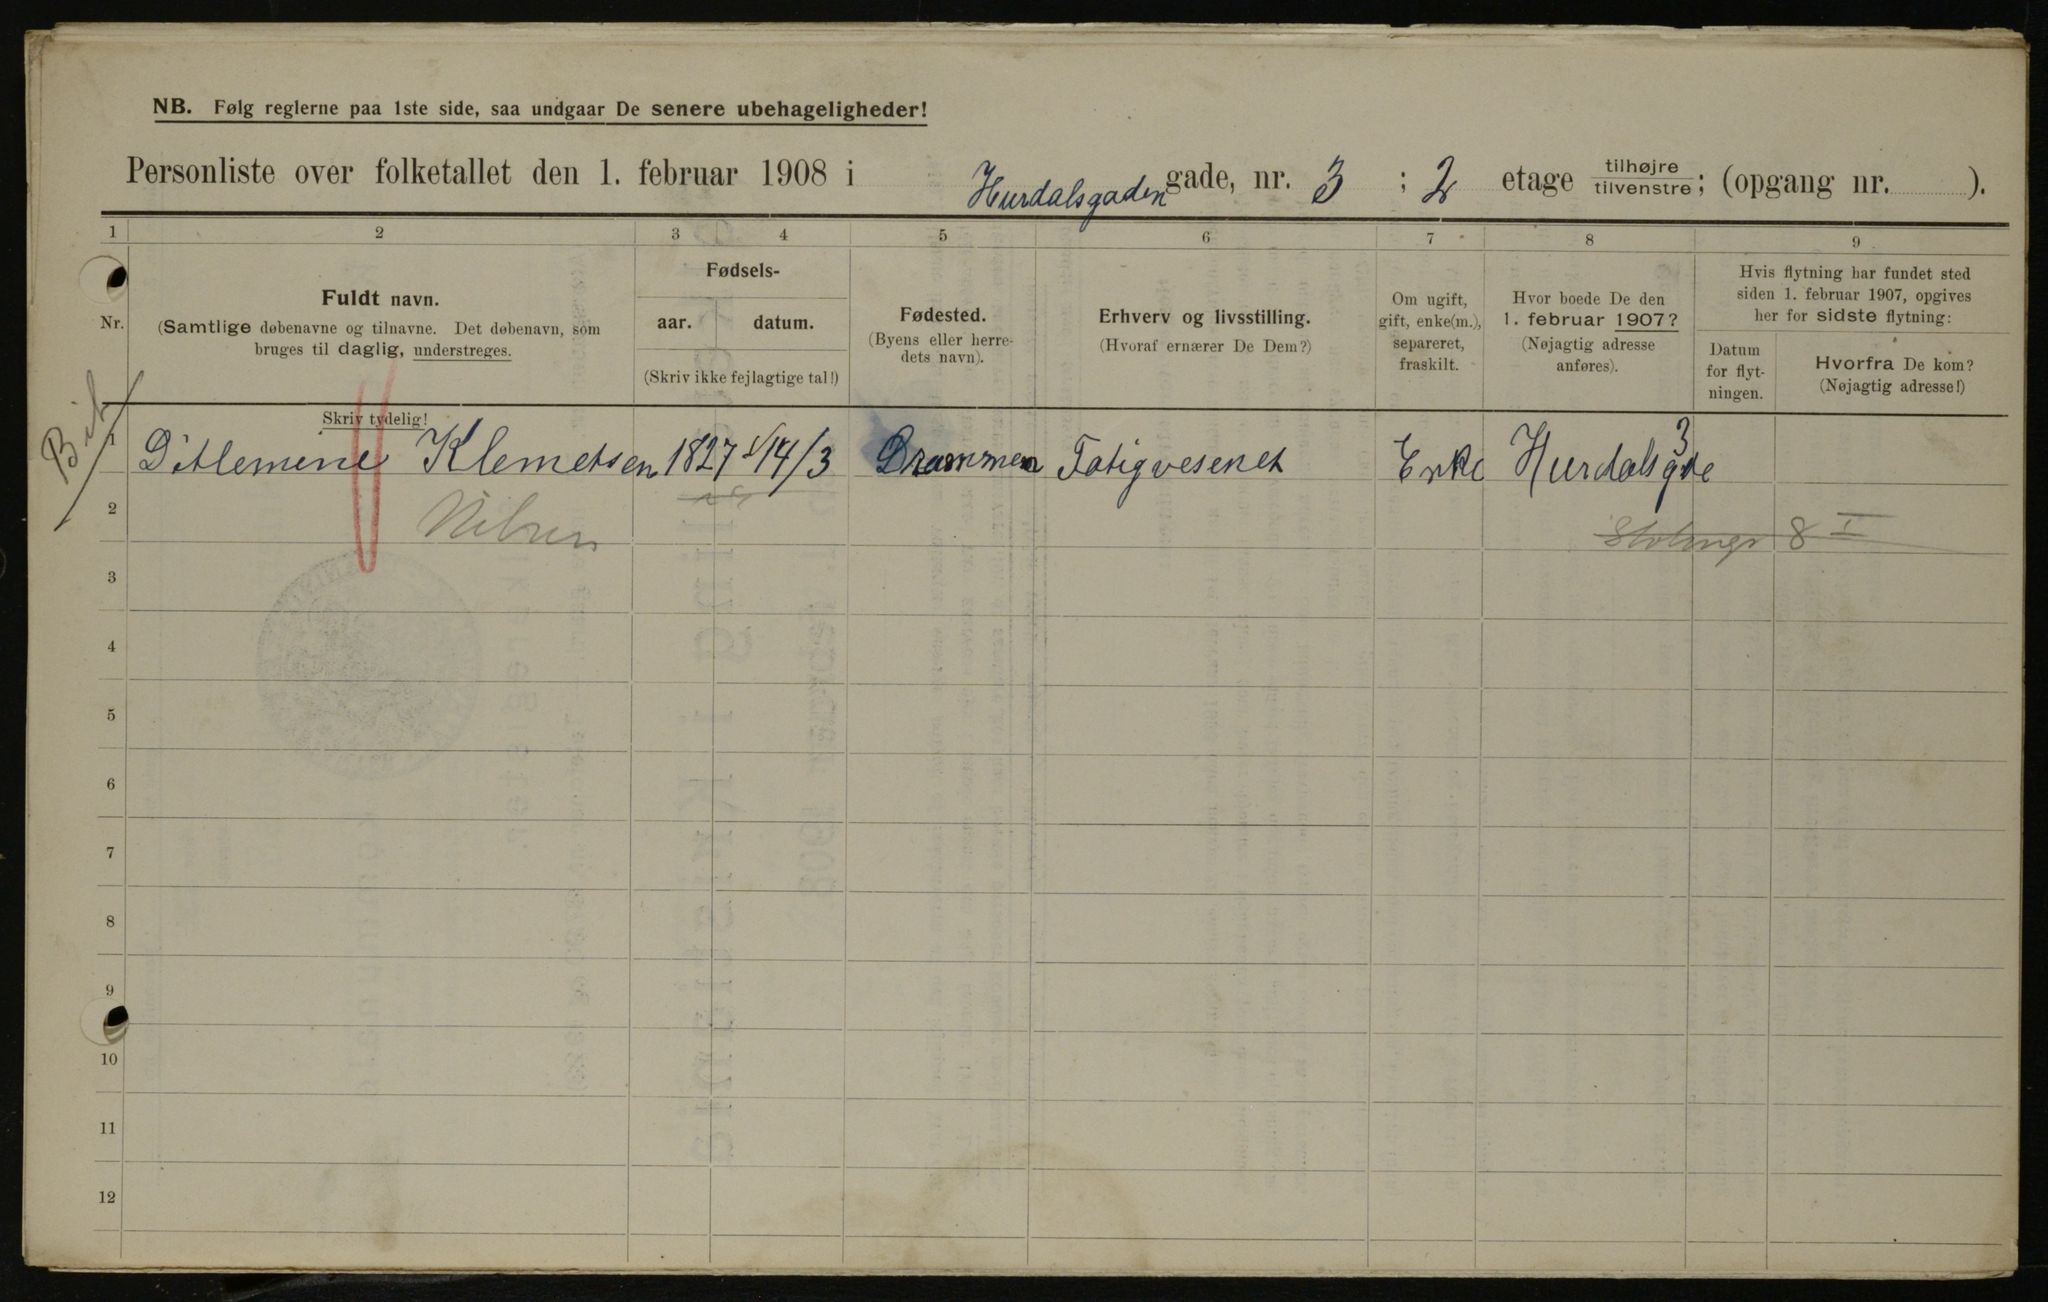 NB. Følg reglerne paa 1ste side, saa undgaar De senere ubehageligheder!
Personliste over folketallet den 1. februar 1908 i Hurdalsgaden gade, nr. 3 ; 2 etage tilhøjre tilvenstre; (opgang nr. ).
1 2 3 4 5 6 7 8 9
Nr.
Fuldt navn.
(Samtlige døbenavne og tilnavne. Det døbenavn, som
bruges til daglig, understreges.
Skriv tydelig!
Fødsels-
aar. datum.
(Skriv ikke fejlagtige tal!)
Fødested.
(Byens eller herre-
dets navn).
Erhverv og livsstilling.
(Hvoraf ernærer De Dem?)
Om ugift,
gift, enke(m.),
separeret,
fraskilt.
Hvor boede De den
1. februar 1907?
(Nøjagtig adresse
anføres).
Hvis flytning har fundet sted
siden 1. februar 1907, opgives
her for sidste flytning:
Datum
for flyt-
ningen.
Hvorfra De kom?
(Nøjagtig adresse!)
1 Ditlemine Klemetsen 1827 14/3 Drammen Fatigvesenet Enke Hurdalsgde 3
2 8 I
3
4
5
6
7
8
9
10
11
12